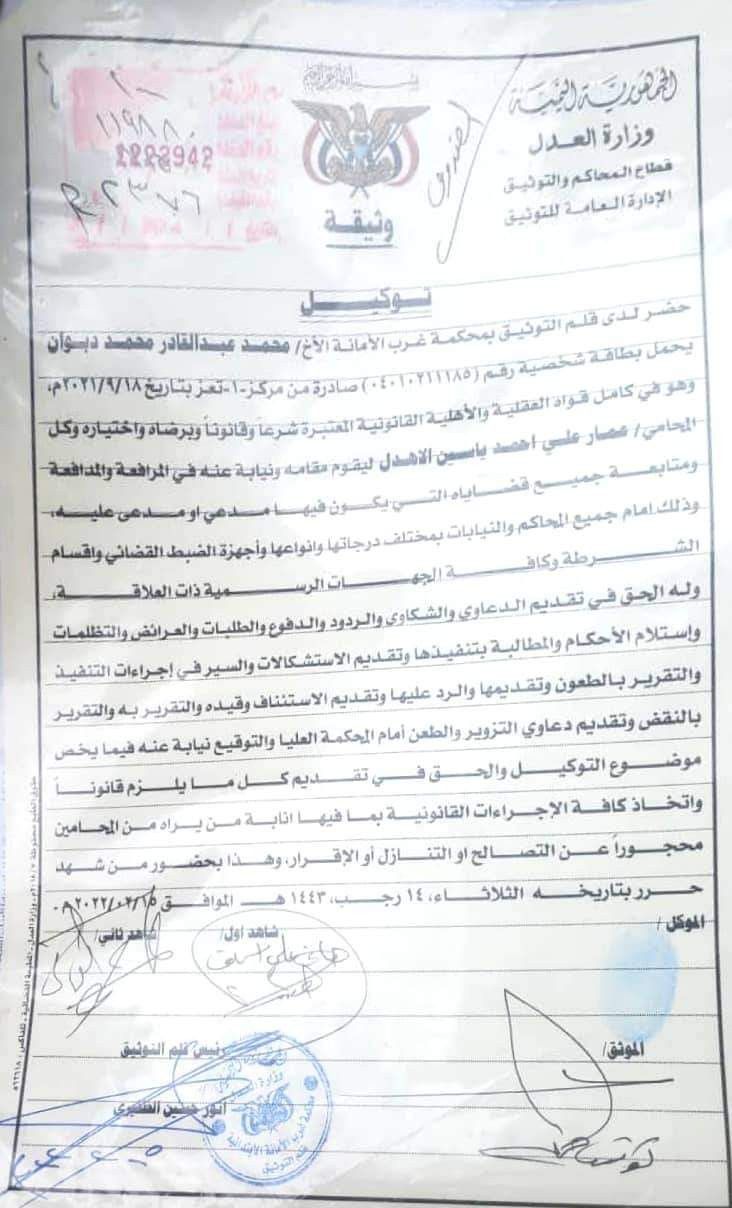 الجمهورية اليمنية
وزارة العدل
قطاع المحاكم والتوثيق
الإدارة العامة للتوثيق
بسم الله الرحمن الرحيم
وثيقة
الصندوق
١١٩٨٨
2228942
توكيل
حضر لدى قلم التوثيق بمحكمة غرب الأمانة الأخ/ محمد عبدالقادر محمد ديوان
يحمل بطاقة شخصية رقم (٠٤٠١٠٢١١١٨٥) صادرة من مركز-١-تعز بتاريخ ٢٠٢١/٩/١٨م،
وهو في كامل قواه العقلية والأهلية القانونية المعتبرة شرعاً وقانوناً وبرضاه واختياره وكل
المحامي/ عمار علي احمد ياسين الاهدل ليقوم مقامه ونيابة عنه في المرافعة والمدافعة
ومتابعة جميع قضاياه التي يكون فيها مدعي او مدعى عليه،
وذلك امام جميع المحاكم والنيابات بمختلف درجاتها وانواعها وأجهزة الضبط القضائي واقسام
الشرطة وكافة الجهات الرسمية ذات العلاقة،
وله الحق في تقديم الدعاوي والشكاوى والردود والدفوع والطلبات والعرائض والتظلمات
وإستلام الأحكام والمطالبة بتنفيذها وتقديم الاستشكالات والسير في إجراءات التنفيذ
والتقرير بالطعون وتقديمها والرد عليها وتقديم الاستئناف وقيده والتقرير به والتقرير
بالنقض وتقديم دعاوي التزوير والطعن أمام المحكمة العليا والتوقيع نيابة عنه فيما يخص
موضوع التوكيل والحق في تقديم كل ما يلزم قانوناً
واتخاذ كافة الإجراءات القانونية بما فيها انابة من يراه من المحامين
محجوراً عن التصالح او التنازل أو الإقرار، وهذا بحضور من شهد
حرر بتاريخه الثلاثاء، ١٤ رجب، ١٤٤٣ هـ الموافق ٢٠٢٢/٠٢/١٥م
الموكل/
شاهد اول/
شاهد ثاني/
الموثق/
رئيس قلم التوثيق
وزارة العدل
محكمة غرب الأمانة الابتدائية
قلم التوثيق